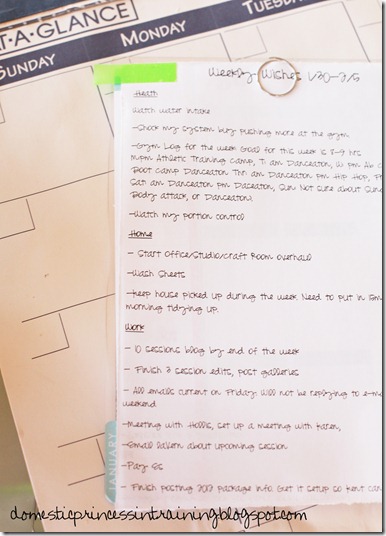 T-A-GLANCE
SUNDAY
MONDAY
TUESD
Weekly Wishes 1/30-2/5
Heath
Watch water intake
-Shock my system buy pushing more at the gym
-Gym Log for the week Goal for this week is 8-9 hrs
m.pm Athletic Training Camp, T. am Danceaton, W. pm Ab
Boot Camp Danceaton Thr. am Danceaton pm Hip Hop,
Sat am Danceaton pm Daceaton, Sun Not sure about
Body attack, or Danceaton).
-Watch my portion control
Home
- Start Office/Studio/Craft Room overhaul
-Wash Sheets
-keep house picked up during the week. Need to put in
morning tidying up.
Work
- 10 sessions blog by end of the week
- Finish 2 session edits, post galleries
- All emails current on Friday. Will not be replying to
weekend
-Meeting with Hollis, set up a meeting with karen,
-Email about upcoming session
-Pay
- Finish posting 2012 package info. Get it setup so kent can
JANUARY
domesticprincessintraining.blogspot.com